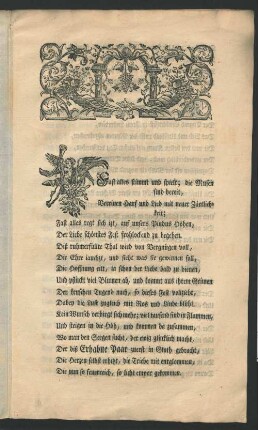 Fast alles stimmt und spielt; die Musen
sind bereit,
Vereinen Harf und Lied mit neuer Zärtlich-
keit;
Fast alles regt sich itzt, auf unsers Pindus Höhen,
Der Liebe schönstes Fest frohlockend zu begehen.
Diß ruhmerfüllte Thal wird von Vergnügen voll,
Die Ehre jauchzt, und sieht was sie gewinnen soll,
Die Hoffnung eilt, ja schon der Liebe bald zu dienen,
Und pflückt viel Blumen ab, und kommt mit ihren
Der keuschen Tugend nach, so dieses Fest
Daben die Lust zugleich mit Ros und Liebe blüht.
Kein Wunsch verbirgt sich mehr, voll tausend in Flammen,
Und steigen in die Höh, und kommen da zusammen,
Wo man den Seegen sucht, der ewig glücklich macht,
Der diß Erhabne Paar zuerst in Gluth gebracht,
Die Herzen selbst erhitzt, die Triebe mit entglommen,
Die nun so feuerreich, so licht empor gekommen.